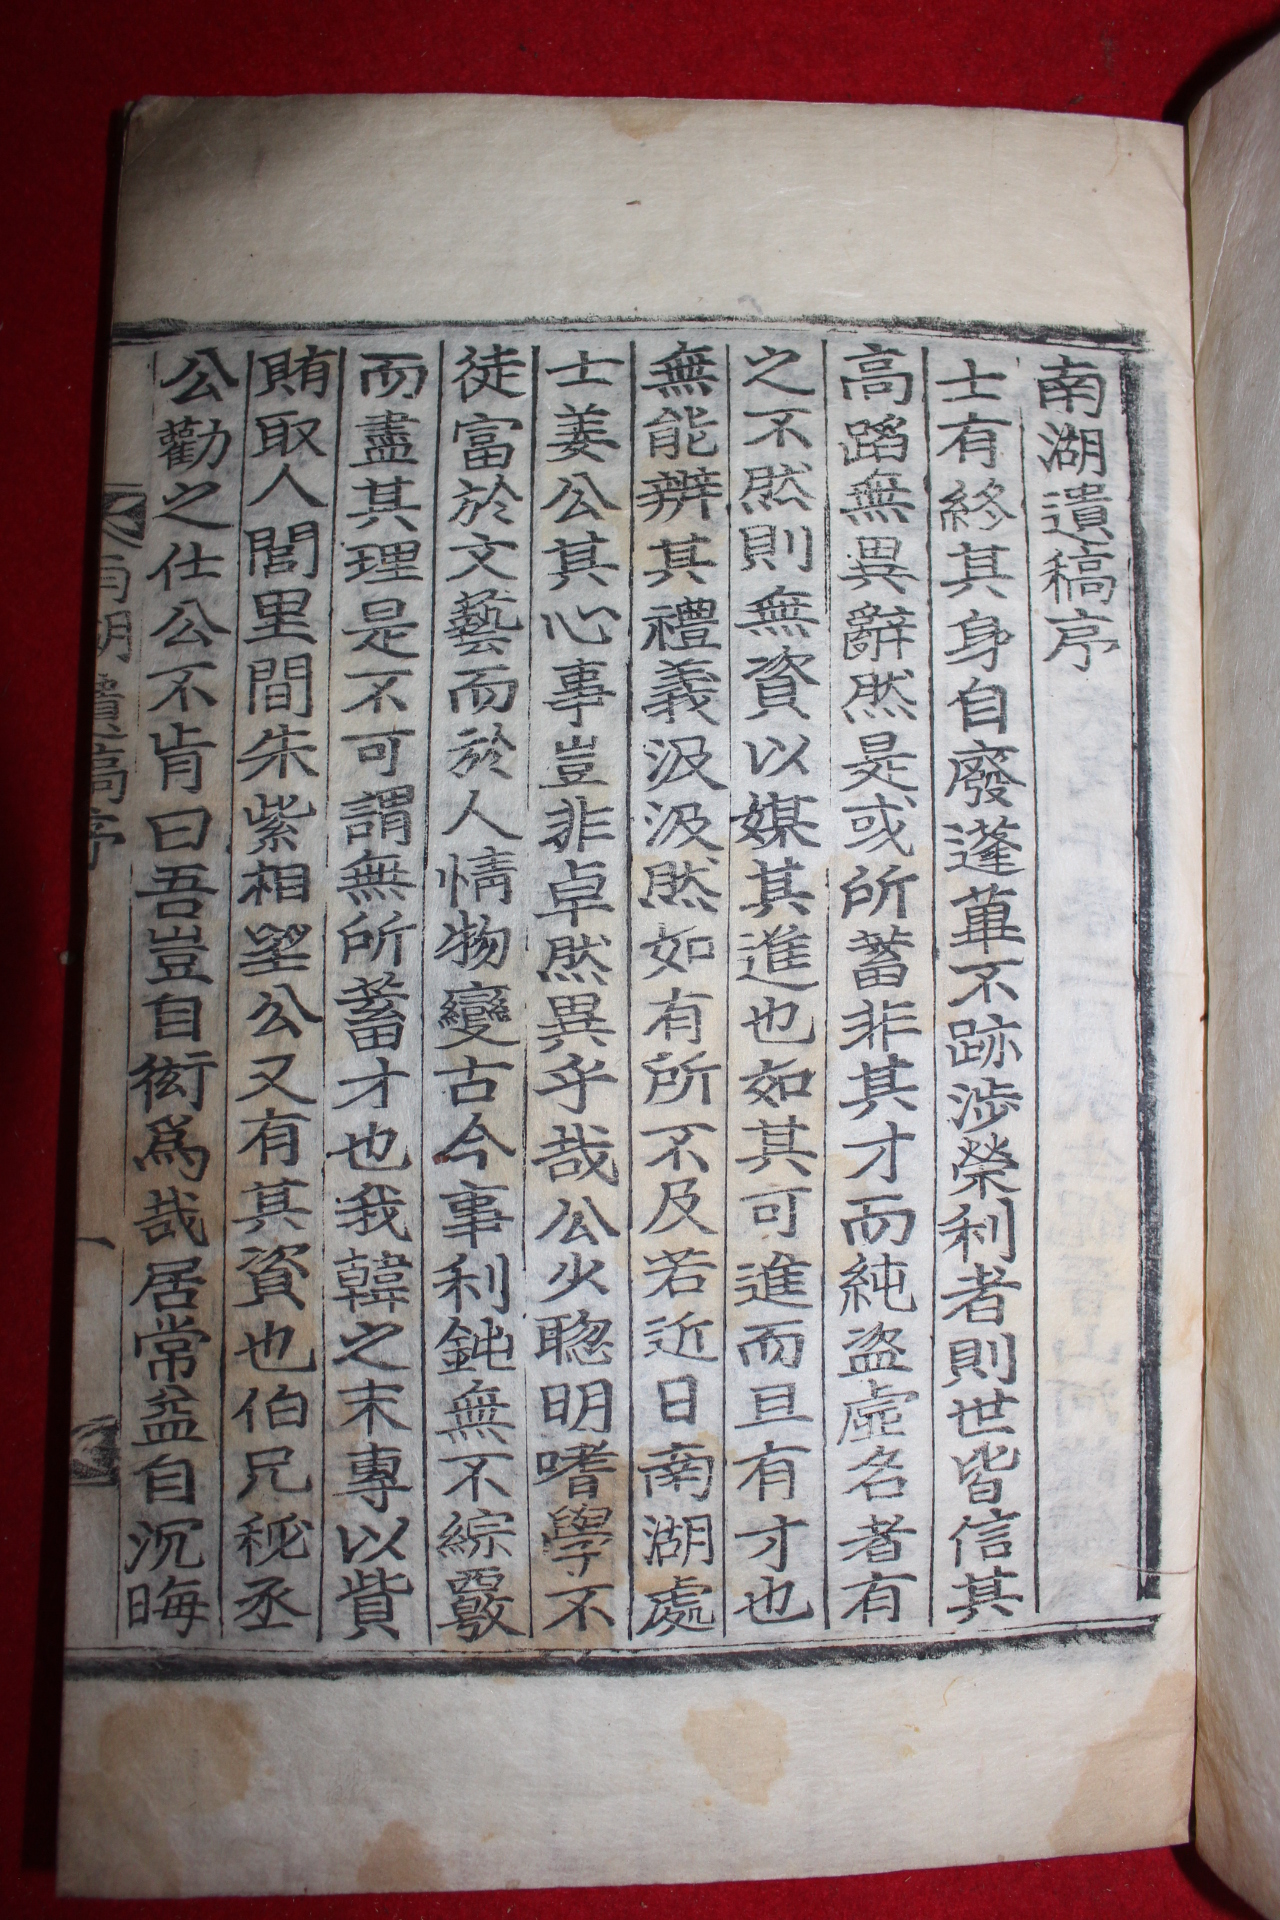 南湖遺稿序
士有終其身自廢蓬蓽不跡涉榮利者則世皆信其
高蹈無異辭然是或所蓄非其才而純盜虛名者有
之不然則無資以媒其進也如其可進而且有才也
無能辨其禮義汲汲然如有所不及若近日南湖處
士姜公其心事豈非卓然異乎哉公少聰明嗜學不
徒富於文藝而於人情物變古今事利鈍無不綜覈
而盡其理是不可謂無所蓄才也我韓之末專以貲
賄取人閭里間朱紫相望公又有其資也伯兄秘丞
公勸之仕公不肯曰吾豈自衒爲哉居常益自沉晦
南湖遺稿序
一